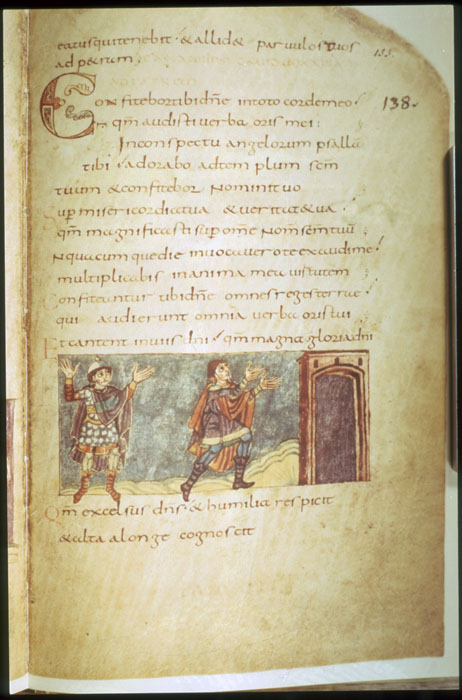 earusquitenebit · & allid& paruulostuos
adpetram;
155.
Confitebortibidñe intoto cordemeo ·
138.
Qm̃ audisti uerba oris mei :
Inconspectu angelorum psallã
tibi · adorabo adtem plum sem̃
tuum & confitebor nominituo
Sup̃ misericordiatua & ueritat&ua ·
qm̃ magnificasti sup omẽ nom̃ sem̃ tuũ
Nquacum quedie inuocauero te exaudime ·
multiplicabis inanima mea uirtutem
Confiteantur tibidñe omnes reges terrae ·
qui audierunt omnia uerba oristui
Et cantent inuiis dni · qm̃ magna gloria dni
Qm̃ excelsus dñs & humilia respicit
& alta alonge cognoscit